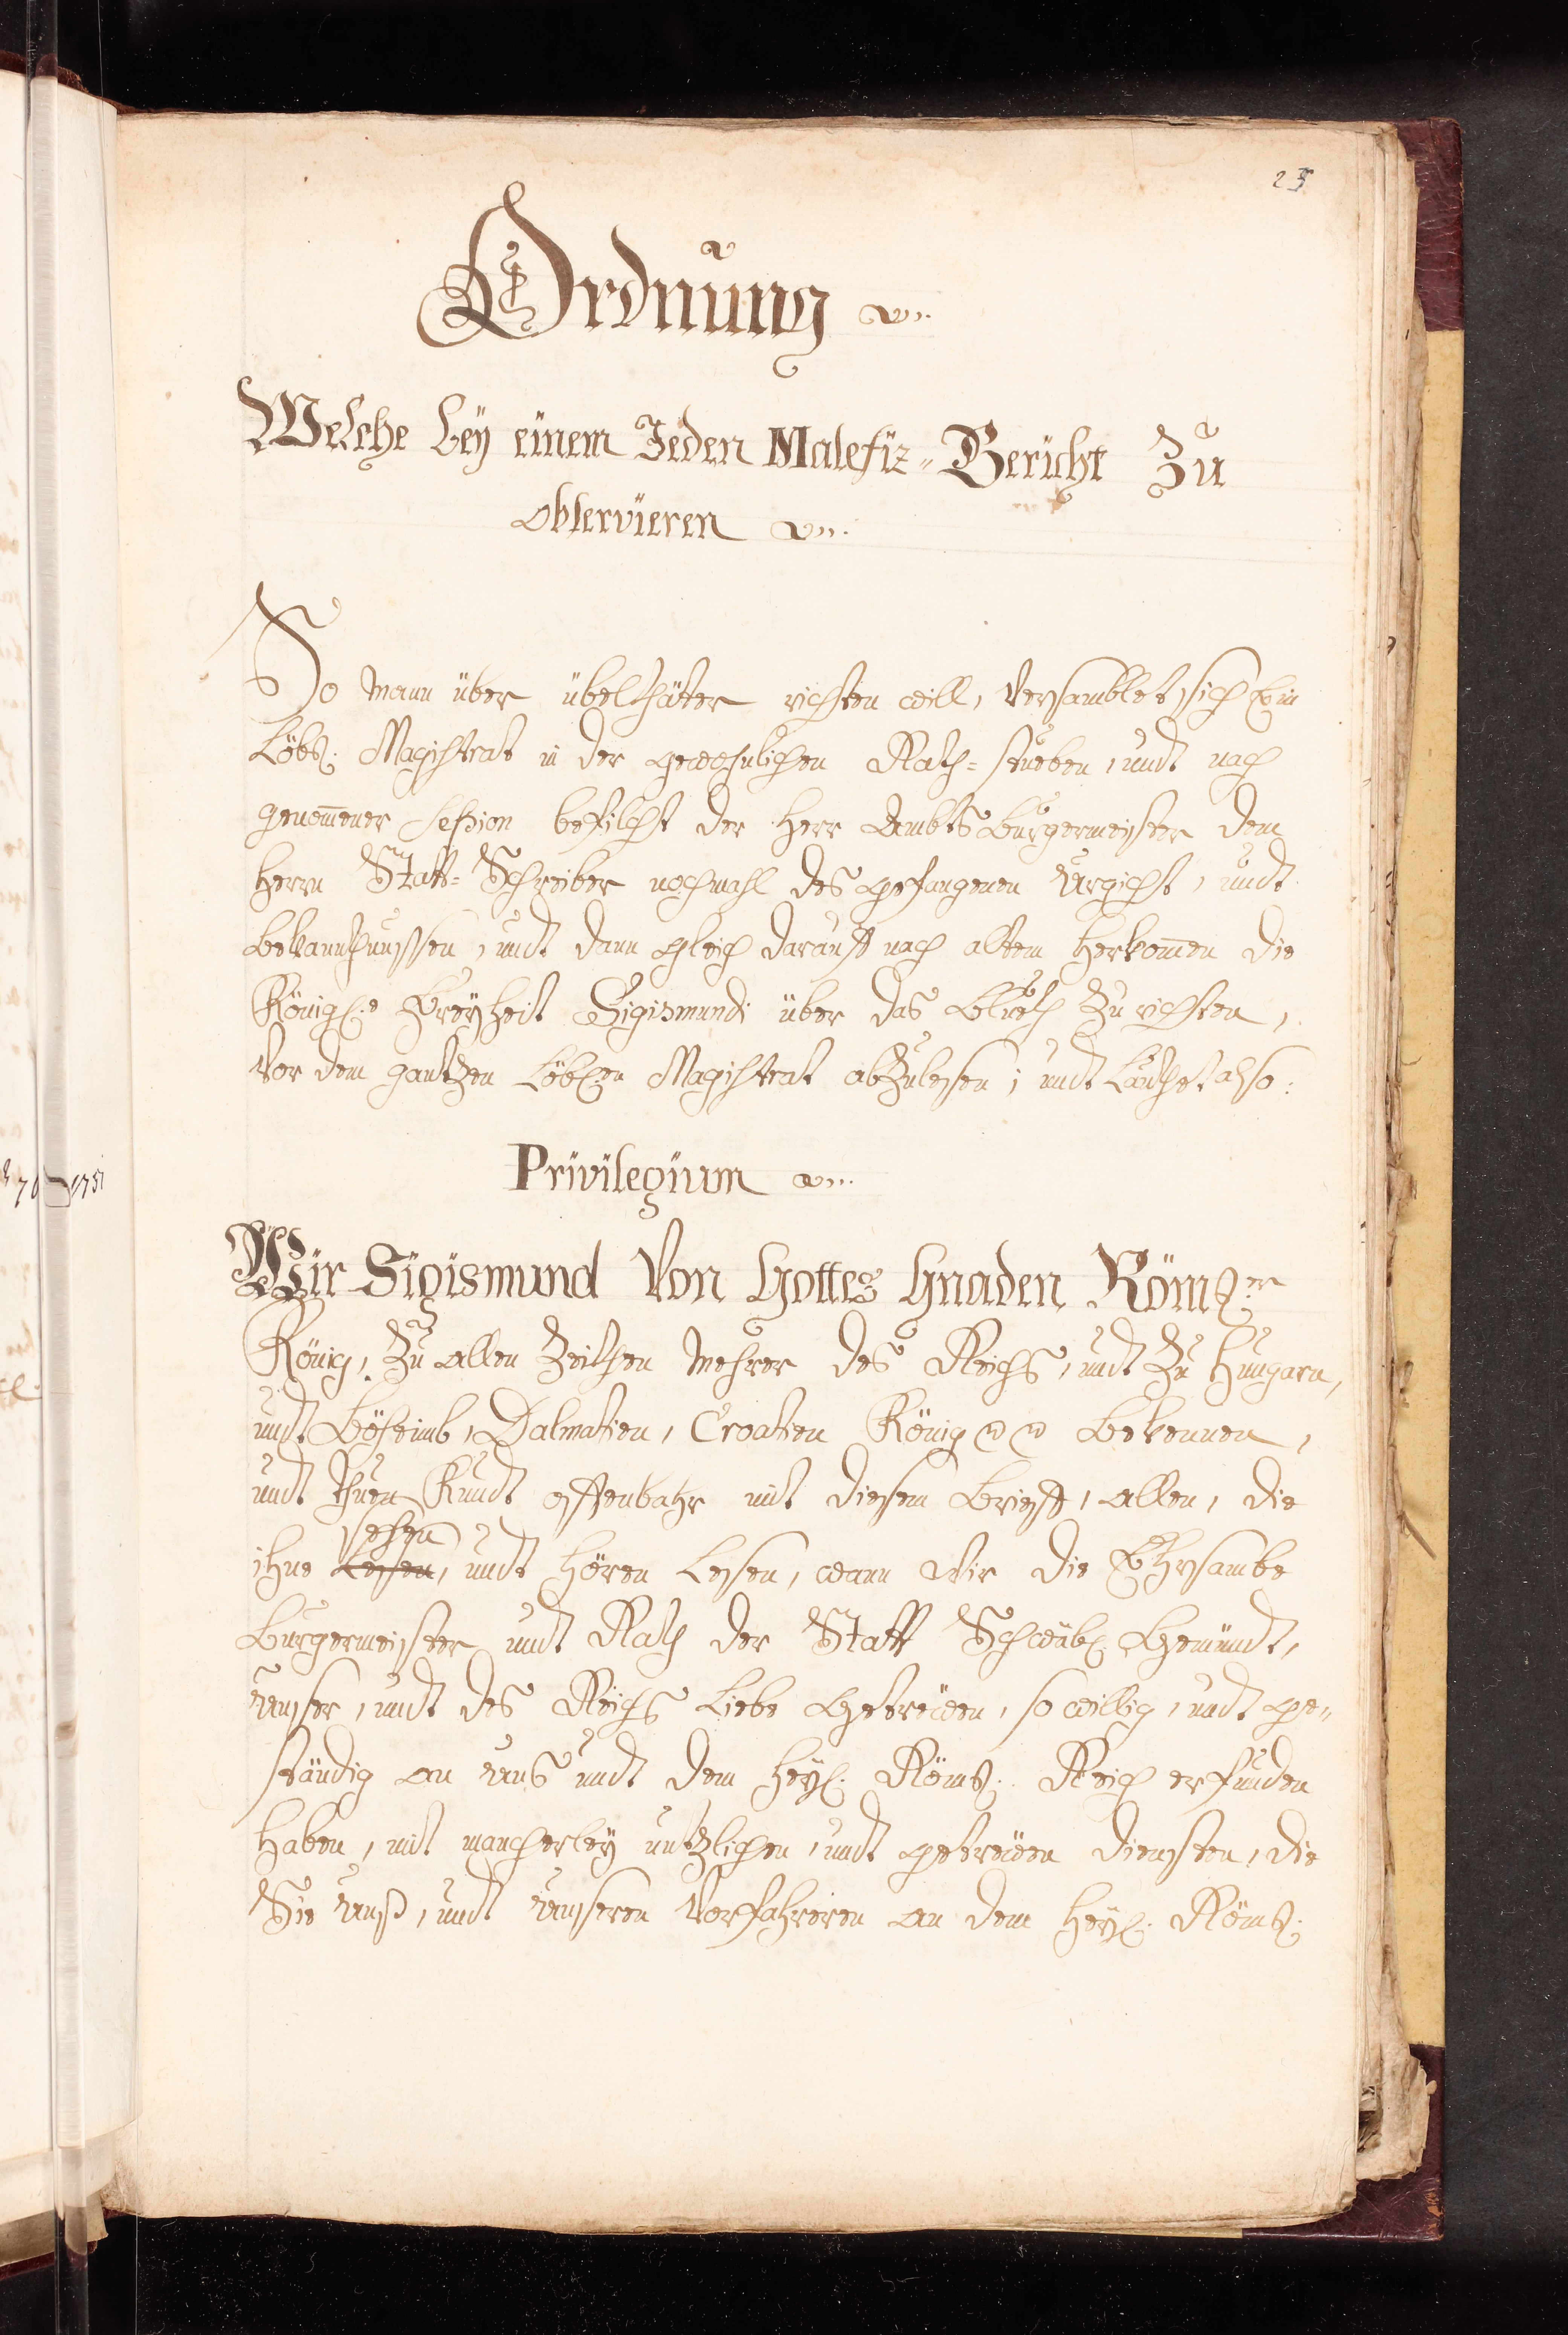 25
Ordnung
Welche beÿ einem Jeden Malefiz-Gericht Zu
observieren
So mann über übelthäter richten will, versamblet sich Ein
Löbl: Magistrat in der gewohnlichen Rath-stueben, undt nach
genom̅ener Seßion befilcht der Herr Ambts Burgermeister dem
Herrn Statt-Schreiber nochmahl des gefangenen Urgicht, undt
bekanntnussen, undt dann gleich darauff nach altem Herkom̅en die
Königl:e Freyheit Sigismundi über das Blueth Zu richten,
vor dem gantzen Löbl:en Magistrat abZulesen; undt Lauthet also:
Privilegium
Wir Sigismund Von Gottes Gnaden Röms:er
König, Zu allen Zeithen mehrer des Reichs, undt Zu Hungarn,
undt Böheimb, Dalmatien, Croatien König bekennen,
undt thuen Kundt offenbahr mit diesem brieff, allen, die
sehen
ihne Lesen, undt hören Lesen, wann Wir die Ehrsambe
Burgermeister undt Rath der Statt Schwäbl: Gemündt,
unser, undt des Reichs Liebe Getrewen, so willig, undt ge-
ständig an uns undt dem heyl: Röms: Reich erfunden
haben, mit mancherley nutzlichen, undt getrewen diensten, die
Sie unß, undt unseren Vorfahreren an dem heyl: Röms: